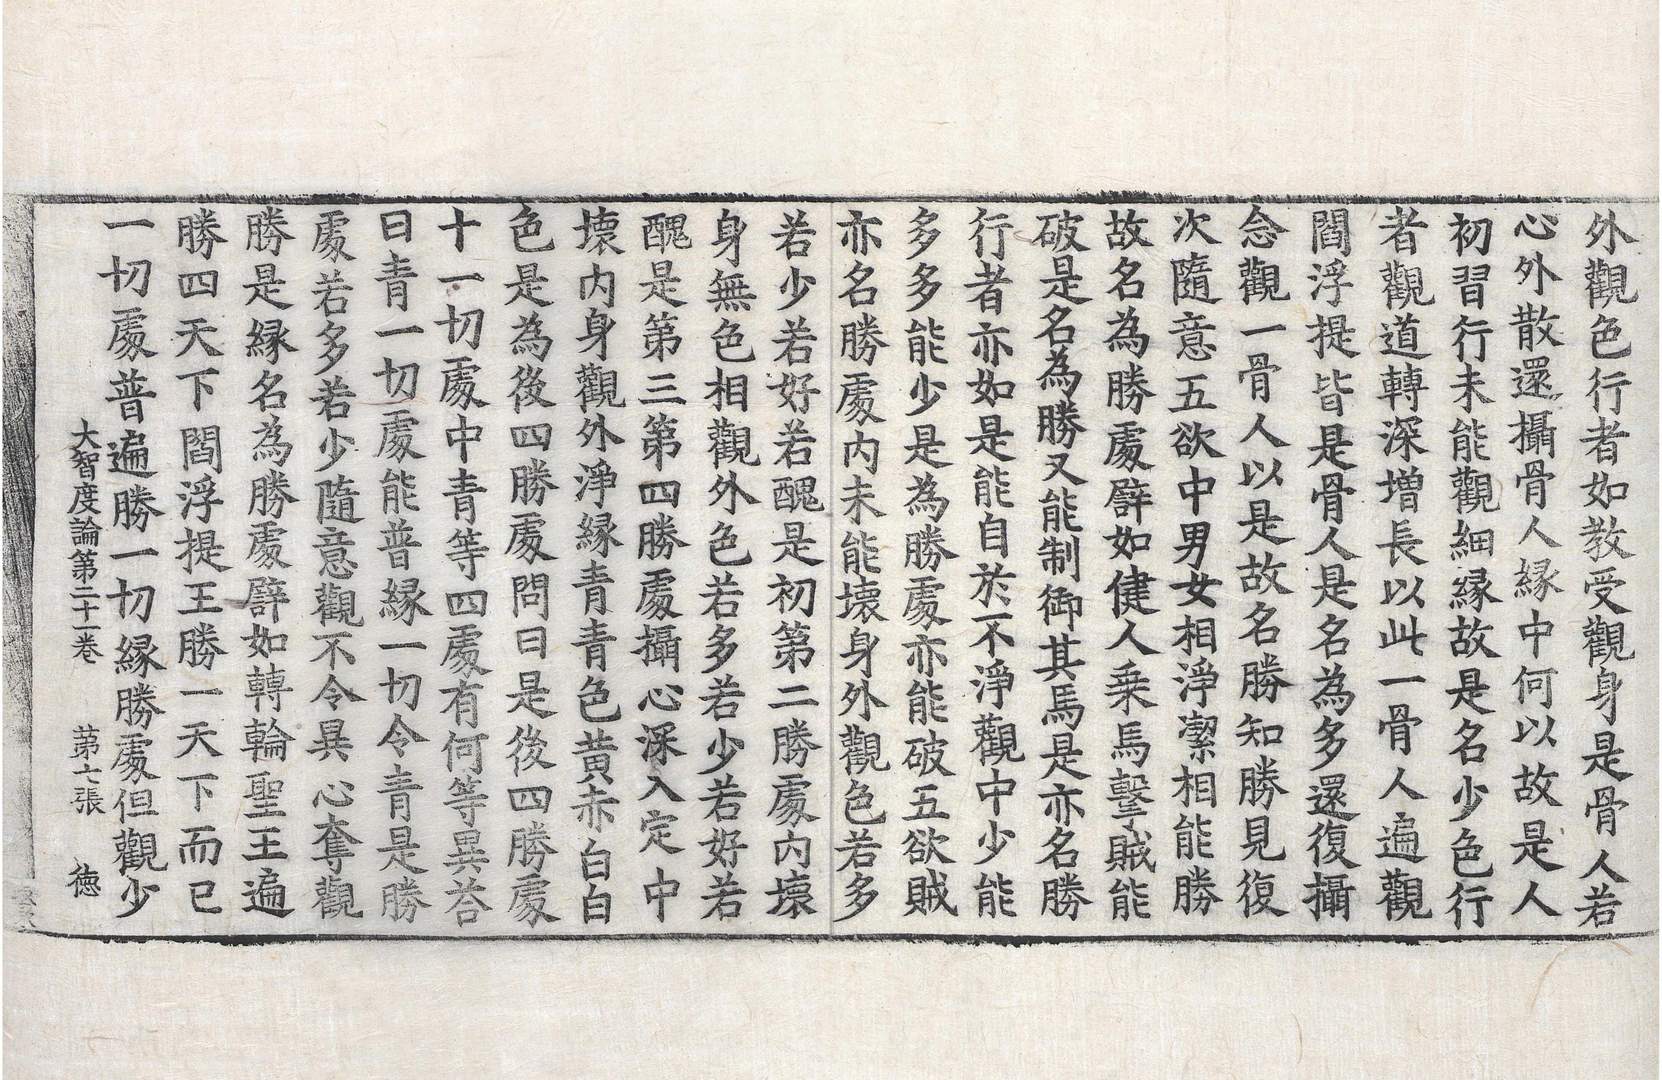 外觀色行者如教受觀身是骨人若
心外散還攝骨人緣中何以故是人
初習行未能觀細緣故是名少色行
者觀道轉深增長以此一骨人遍觀
閻浮提皆是骨人是名為多還復攝
念觀一骨人以是故名勝知勝見復
次隨意五欲中男女相淨潔相能勝
故名為勝處譬如健人乘馬擊賊能
破是名為勝又能制御其馬是亦名勝
行者亦如是能自於不淨觀中少能
多多能少是為勝處亦能破五欲賊
亦名勝處內未能壞身外觀色若多
若少若好若醜是初第二勝處內壞
身無色相觀外色若多若少若好若
醜是第三第四勝處攝心深入定中
壞內身觀外淨緣青青色黃赤白白
色是為後四勝處問曰是後四勝處
十一切處中青等四處有何等異荅
曰青一切處能普緣一切令青是勝
處若多若少隨意觀不令異心奪觀
勝是緣名為勝處譬如轉輪聖王遍
勝四天下閻浮提王勝一天下而已
一切處普遍勝一切緣勝處但觀少
大智度論第二十一卷　第七張　德